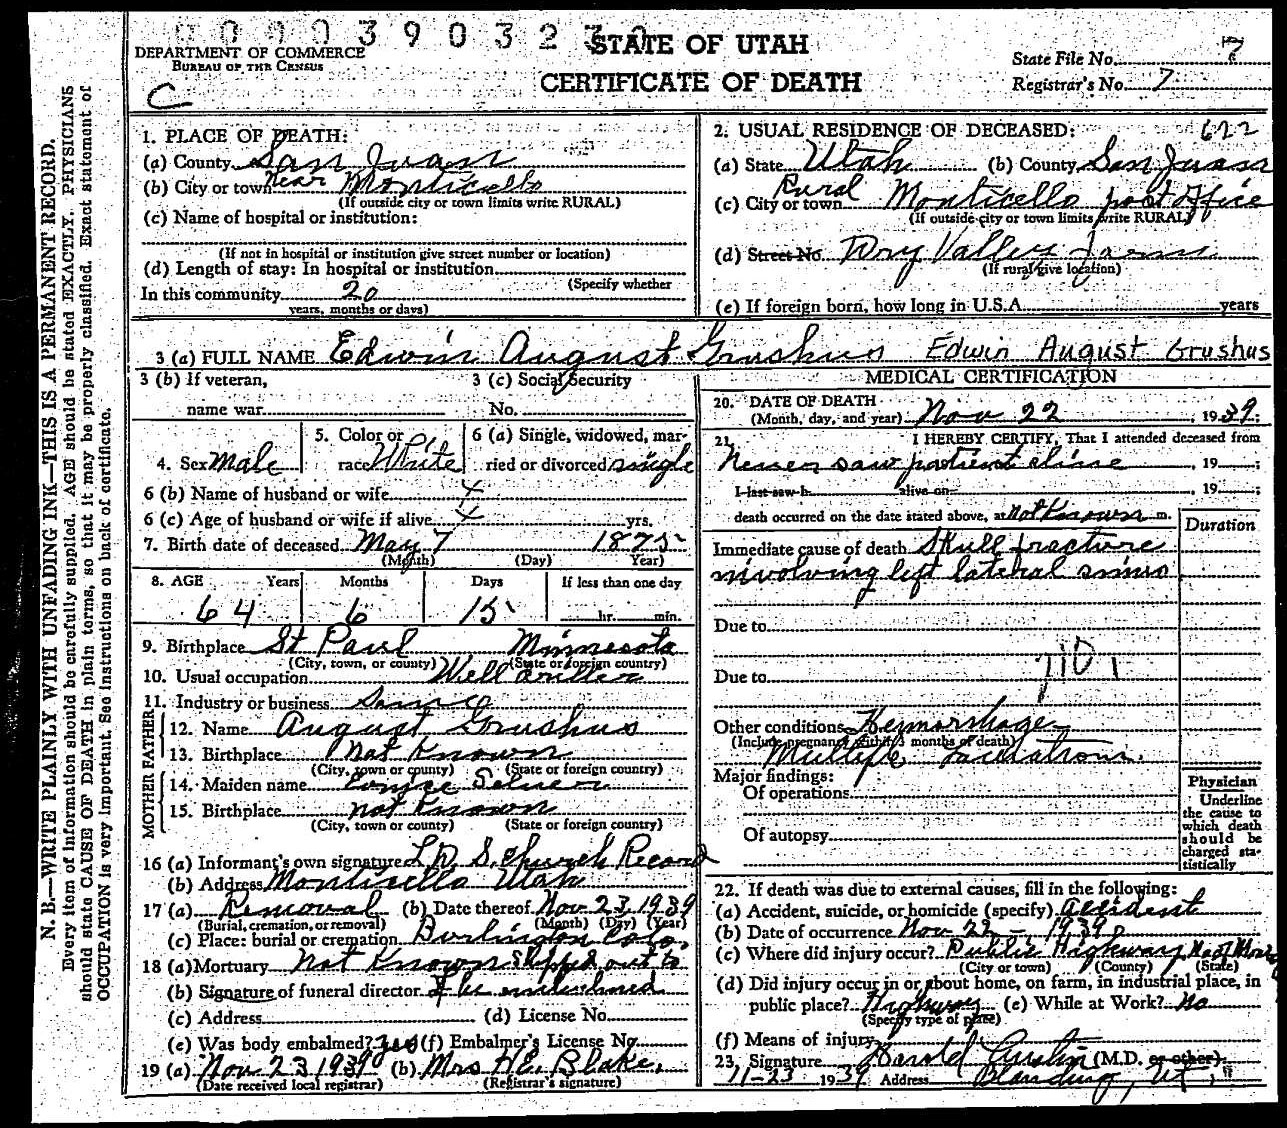 0000390323
STATE OF UTAH
CERTIFICATE OF DEATH
DEPARTMENT OF COMMERCE
BUREAU OF THE CENSUS
C
State File No. 7
Registrar's No. 7
N. B.—WRITE PLAINLY WITH UNFADING INK—THIS IS A PERMANENT RECORD.
Every item of information should be carefully supplied. AGE should be stated EXACTLY. PHYSICIANS
should state CAUSE OF DEATH in plain terms, so that it may be properly classified. Exact statement of
OCCUPATION is very important. See instructions on back of certificate.
1. PLACE OF DEATH:
(a) County San Juan
(b) City or town Near Monticello
(If outside city or town limits write RURAL)
(c) Name of hospital or institution:
(If not in hospital or institution give street number or location)
(d) Length of stay: In hospital or institution
(Specify whether
In this community 20
years, months or days)
2. USUAL RESIDENCE OF DECEASED: 622
(a) State Utah (b) County San Juan
(c) City or town Rural Monticello post office
(If outside city or town limits write RURAL)
(d) Street No. Dry Valley Farm
(If rural give location)
(e) If foreign born, how long in U.S.A. years
3 (a) FULL NAME Edwin August Grushus Edwin August Grushus
3 (b) If veteran,
name war
3 (c) Social Security
No.
4. Sex Male
5. Color or
race White
6 (a) Single, widowed, mar-
ried or divorced single
6 (b) Name of husband or wife x
6 (c) Age of husband or wife if alive x yrs.
7. Birth date of deceased May 7 1875
(Month) (Day) Year)
8. AGE Years Months Days If less than one day
64 6 15 hr. min.
9. Birthplace St Paul Minnesota
(City, town, or county) (State or foreign country)
10. Usual occupation Well driller
11. Industry or business Same
FATHER
12. Name August Grushus
13. Birthplace Not Known
(City, town or county) (State or foreign country)
MOTHER
14. Maiden name
15. Birthplace not Known
(City, town or county) (State or foreign country)
16 (a) Informant's own signature L.D.S. Church Record
(b) Address Monticello Utah
17 (a) Removal (b) Date thereof Nov 23 1939
(Burial, cremation, or removal) (Month) (Day) (Year)
(c) Place: burial or cremation Burlington Colo.
18 (a) Mortuary Not Known Shipped out to
(b) Signature of funeral director be embalmed
(c) Address (d) License No.
(e) Was body embalmed? yes (f) Embalmer's License No.
19 (a) Nov. 23 1939 (b) Mrs H.E. Blake.
(Date received local registrar) (Registrar's signature)
MEDICAL CERTIFICATION
20. DATE OF DEATH
(Month, day, and year) Nov 22, 1939.
21. I HEREBY CERTIFY, That I attended deceased from
Never saw patient alive, 19 ;
I last saw h alive on , 19 ;
death occurred on the date stated above, at Not Known m.
Duration
Immediate cause of death Skull fracture
involving left lateral sinus
Due to
Due to
Other conditions Hemorrhage
(Include pregnancy within 3 months of death)
Multiple lacerations.
Major findings:
Of operations
Of autopsy
Physician
Underline
the cause to
which death
should be
charged sta-
tistically
22. If death was due to external causes, fill in the following:
(a) Accident, suicide, or homicide (specify) Accident
(b) Date of occurrence Nov 22 - 1939
(c) Where did injury occur? Public Highway No of
(City or town) (County) (State)
(d) Did injury occur in or about home, on farm, in industrial place, in
public place? Highway (e) While at Work? no
(Specify type of place)
(f) Means of injury
23. Signature Harold Austin (M.D. or other).
11-23 1939 Address Blanding, Ut.